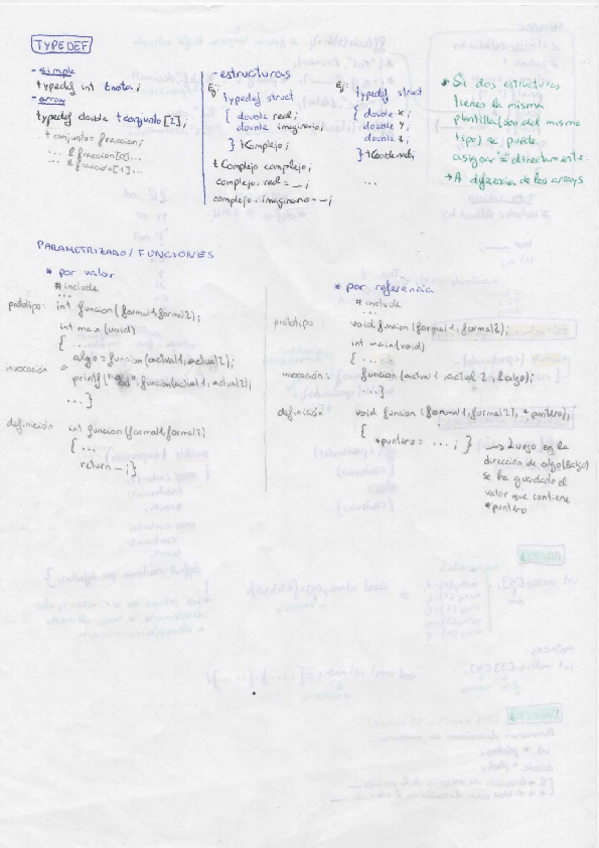 TYPEDEF
- simple
typedef int tnota;
- array
typedef double tconjunto[2];
tconjunto fraccion;
... & fraccion[0]...
... & fraccion[1]...
- estructuras
Ej:
typedef struct
{ double real;
double imaginario;
} tComplejo;
tComplejo complejo;
complejo.real = _ ;
complejo.imaginario = _ ;
Ej:
typedef struct
{ double x;
double y;
double z;
}
...
* Si dos estructuras
tienen la misma
plantilla (son del mismo
tipo) se puede
asignar = directamente.
→ A diferencia de los arrays
PARAMETRIZADO / FUNCIONES
* por valor
#include
...
prototipo: int funcion (formal1, formal2);
int main (void)
{ ...
invocación algo = funcion (actual1, actual2);
printf ("%d", funcion(actual1, actual2);
... }
definición int funcion (formal1, formal2)
{ ...
return _ ; }
* por referencia
#include
...
prototipo void funcion (formal1, formal2);
int main (void)
{ ...
invocación: funcion (actual1, actual2, &algo);
... }
definición void funcion (formal1, formal2, *puntero);
{
*puntero = ... ; } → Luego en la
dirección de algo (&algo)
se ha guardado el
valor que contiene
*puntero